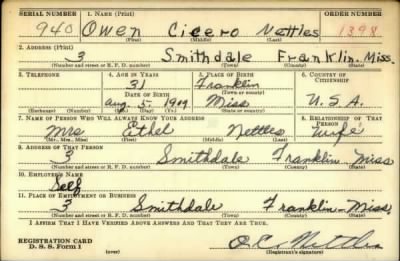 SERIAL NUMBER 1. NAME (Print) ORDER NUMBER
940 Owen Cicero Nettles 1398
(First) (Middle) (Last)
2. ADDRESS (Print)
3 Smithdale Franklin Miss.
(Number and street or R. F. D. number) (Town) (County) (State)
3. TELEPHONE 4. AGE IN YEARS 5. PLACE OF BIRTH 6. COUNTRY OF CITIZENSHIP
31 Franklin
DATE OF BIRTH (Town or county)
Aug. 5. 1909 Miss U.S.A.
(Exchange) (Number) (Mo.) (Day) (Yr.) (State or country)
7. NAME OF PERSON WHO WILL ALWAYS KNOW YOUR ADDRESS 8. RELATIONSHIP OF THAT PERSON
Mrs Ethel Nettles Wife
(Mr., Mrs., Miss) (First) (Middle) (Last)
9. ADDRESS OF THAT PERSON
3 Smithdale Franklin - Miss
(Number and street or R. F. D. number) (Town) (County) (State)
10. EMPLOYER'S NAME
Self
11. PLACE OF EMPLOYMENT OR BUSINESS
3 Smithdale Franklin - Miss.
(Number and street or R. F. D. number) (Town) (County) (State)
I AFFIRM THAT I HAVE VERIFIED ABOVE ANSWERS AND THAT THEY ARE TRUE.
REGISTRATION CARD
D. S. S. Form 1 (over) O. C. Nettles
(Registrant's signature)